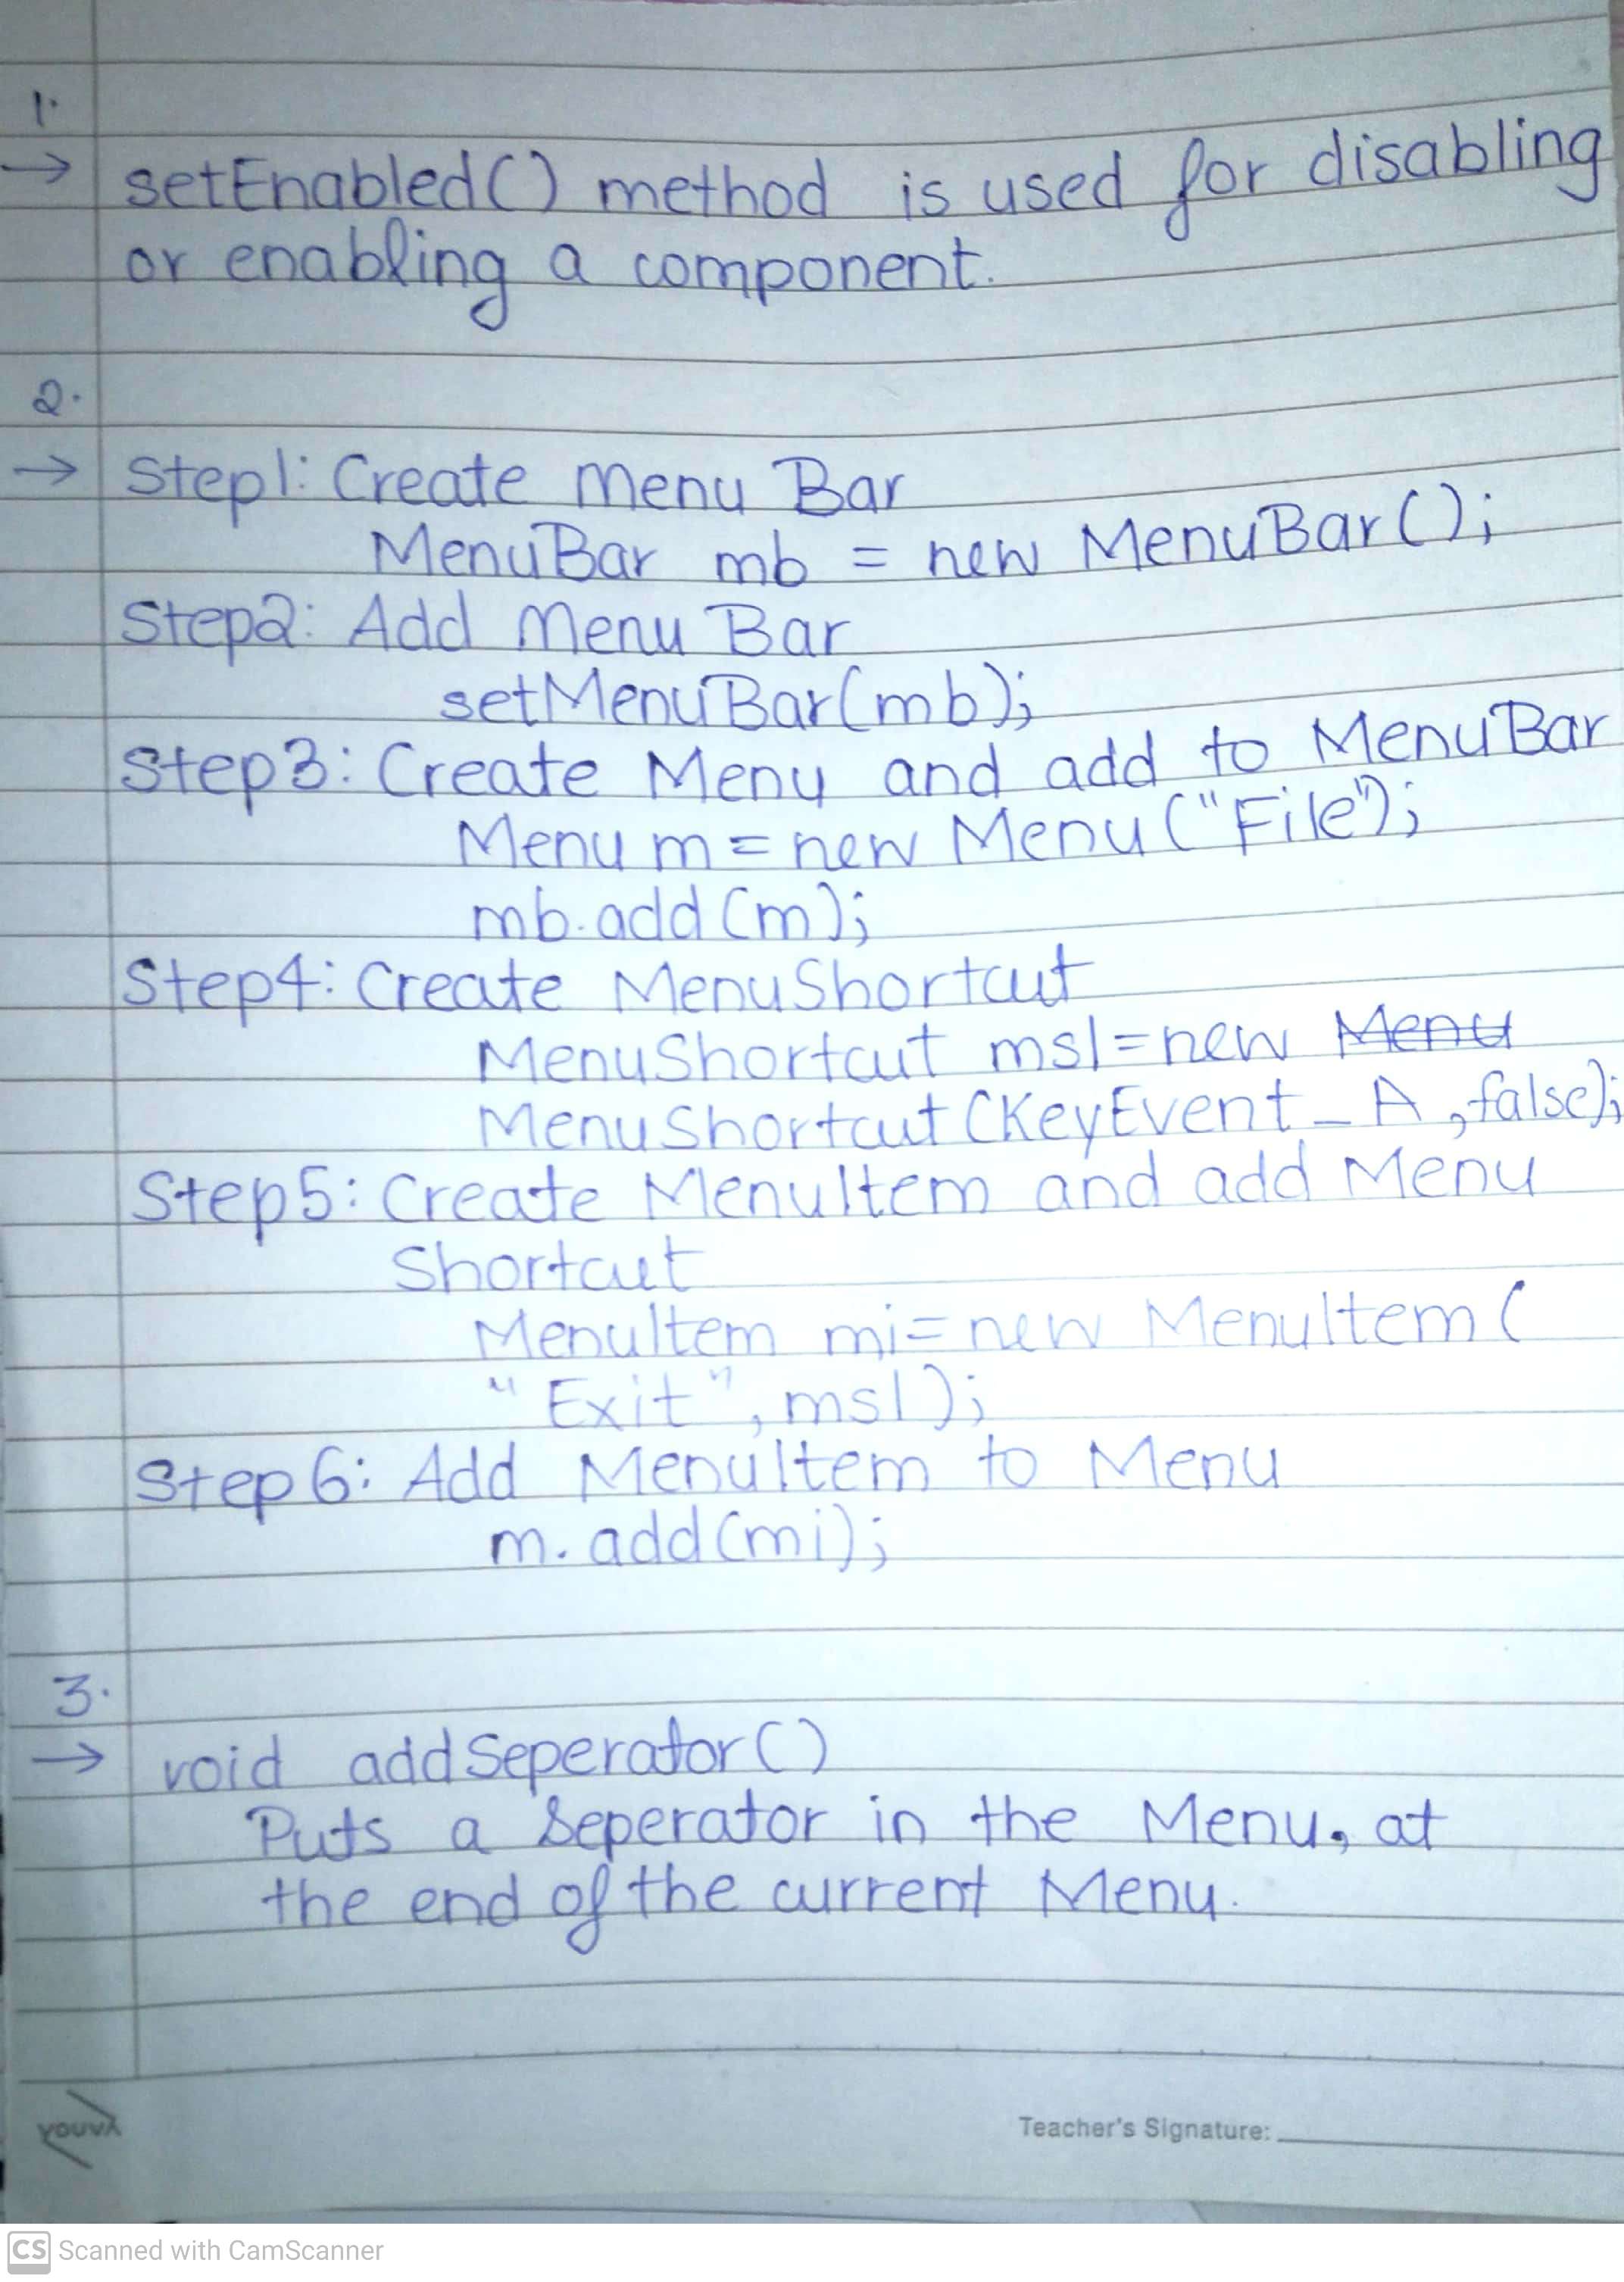 1.
→ setEnabled() method is used for disabling
or enabling a component.
2.
→ Step1: Create Menu Bar
MenuBar mb = new MenuBar();
Step2: Add Menu Bar
setMenuBar(mb);
Step3: Create Menu and add to MenuBar
Menu m = new Menu("File");
mb.add(m);
Step4: Create MenuShortcut
MenuShortcut ms1=new Menu
MenuShortcut(KeyEvent_A,false);
Step5: Create MenuItem and add Menu
Shortcut
MenuItem mi=new MenuItem(
"Exit",ms1);
Step6: Add MenuItem to Menu
m.add(mi);
3.
→ void addSeperator()
Puts a Seperator in the Menu, at
the end of the current Menu.
YOUVA
Teacher's Signature:
CS Scanned with CamScanner